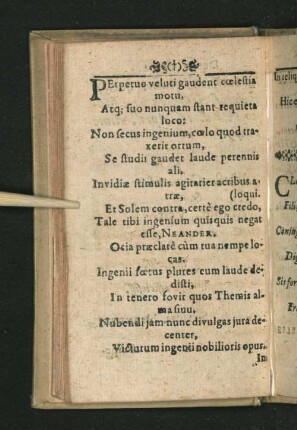 (†)
PErpetuo veluti gaudent cœlestia
motu,
Atq; suo nunquam stant requieta
loco:
Non secus ingenium, cœlo quod tra-
xerit ortum,
Se studii gaudet laude perennis
ali,
Invidiæ stimulis agitarier acribus a-
træ, (loqui.
Et Solem contra, certè ego credo,
Tale tibi ingenium quisquis negat
esse, NEANDER.
Ocia præclarè cùm tua nempe lo-
cas.
Ingenii fœtus plures cum laude de-
disti,
In tenero fovit quos Themis al-
ma sinu,
Nubendi jam nunc divulgas jura de-
center,
Victurum ingenii nobilioris opus.
In
In
Hice
CL
Fili
Coniu
Dig
Sit for
Fr